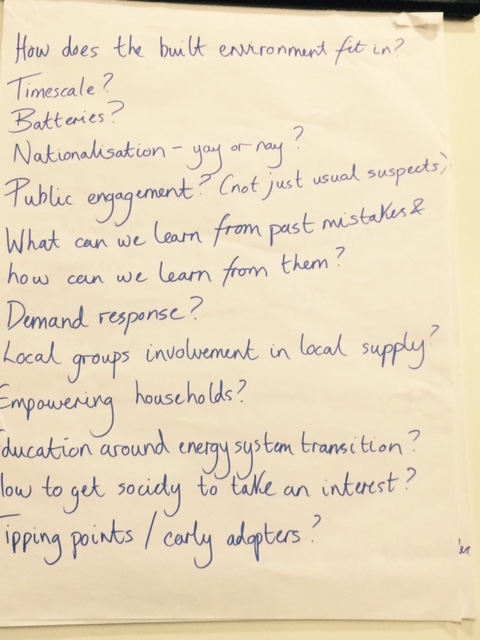 How does the built environment fit in?
Timescale?
Batteries?
Nationalisation - yay or nay?
Public engagement? (not just usual suspects)
What can we learn from past mistakes &
how can we learn from them?
Demand response?
Local groups involvement in local supply?
Empowering households?
Education around energy system transition?
How to get society to take an interest?
Tipping points / early adopters?